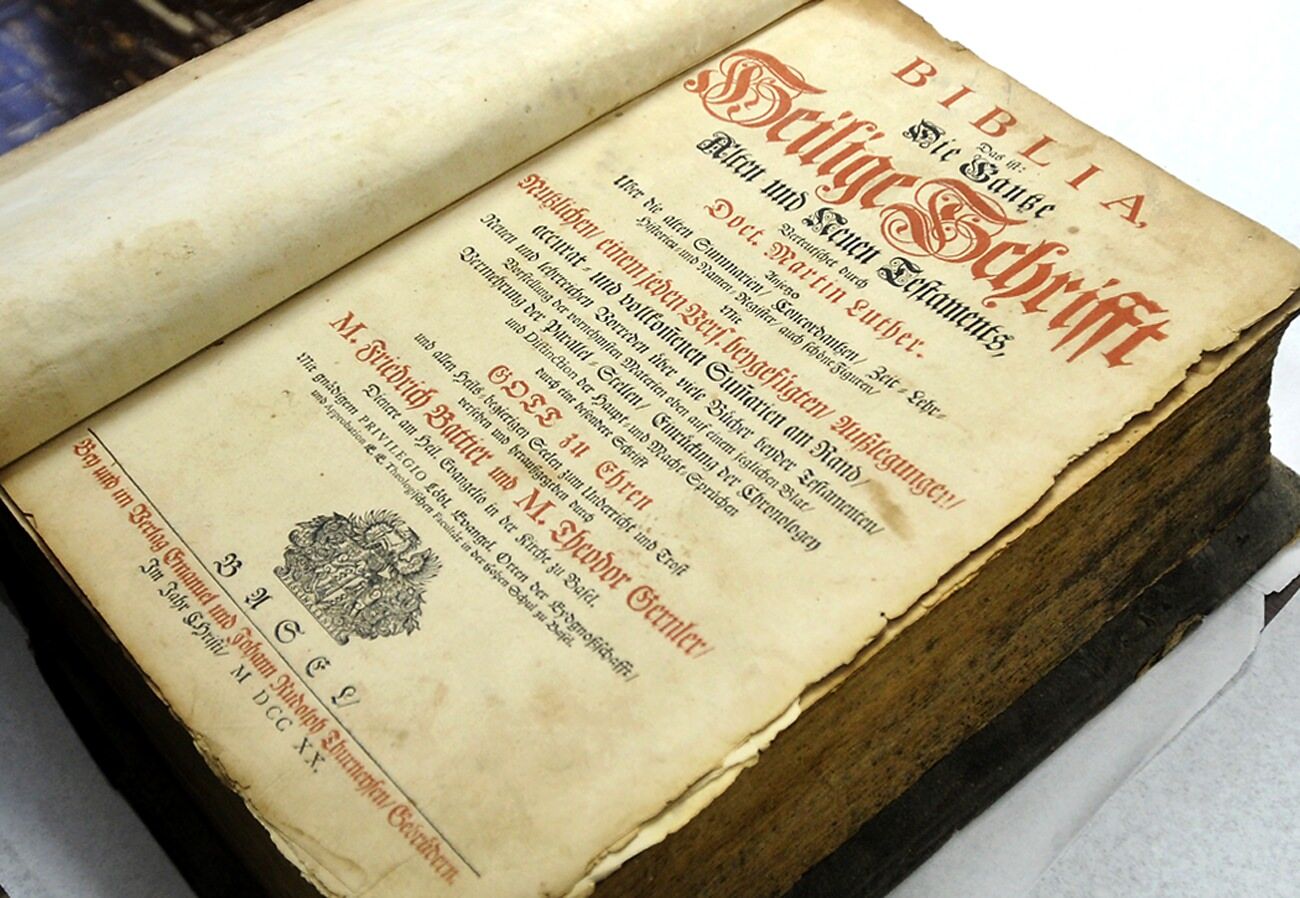 BIBLIA,
Das ist:
Die Gantze
Heilige Schrifft
Alten und Neuen Testaments,
Verteutschet durch
Doct. Martin Luther.
Anjetzo
Uber die alten Summarien/ Concordantzen/ Zeit- Lehr-
Historien- und Namen-Register/ auch schöne Figuren/
Mit
Nutzlichen/ einen jeden Vers. beygefügten/ Außlegungen/
accurat- und vollkom̃enen Sum̃arien am Rand/
Neuen und lehrreichen Vorreden über viele Bücher beyder Testamenten/
Vorstellung der vornehmsten Materien oben auf einem jeglichen Blat/
Vermehrung der Parallel-Stellen/ Einrückung der Chronologey
und Distinction der Haupt- und Macht-Sprüchen
durch eine besondere Schrifft
GOTT zu Ehren
und allen Heils-begierigen Seelen zum Underricht und Trost
versehen und herausgegeben durch
M. Friedrich Battier und M. Theodor Gernler/
Dienere am Heil. Evangelio in der Kirche zu Basel.
Mit gnädigem PRIVILEGIO Löbl. Evangel. Orten der Eydgnoßschafft/
und Approbation E. E. Theologischen Facultät in der hohen Schul zu Basel.
BASEL/
Bey und im Verlag Emanuel und Johann Rudolph Thurneysen/ Gebrüdern.
Im Jahr Christi/ M DCC XX.